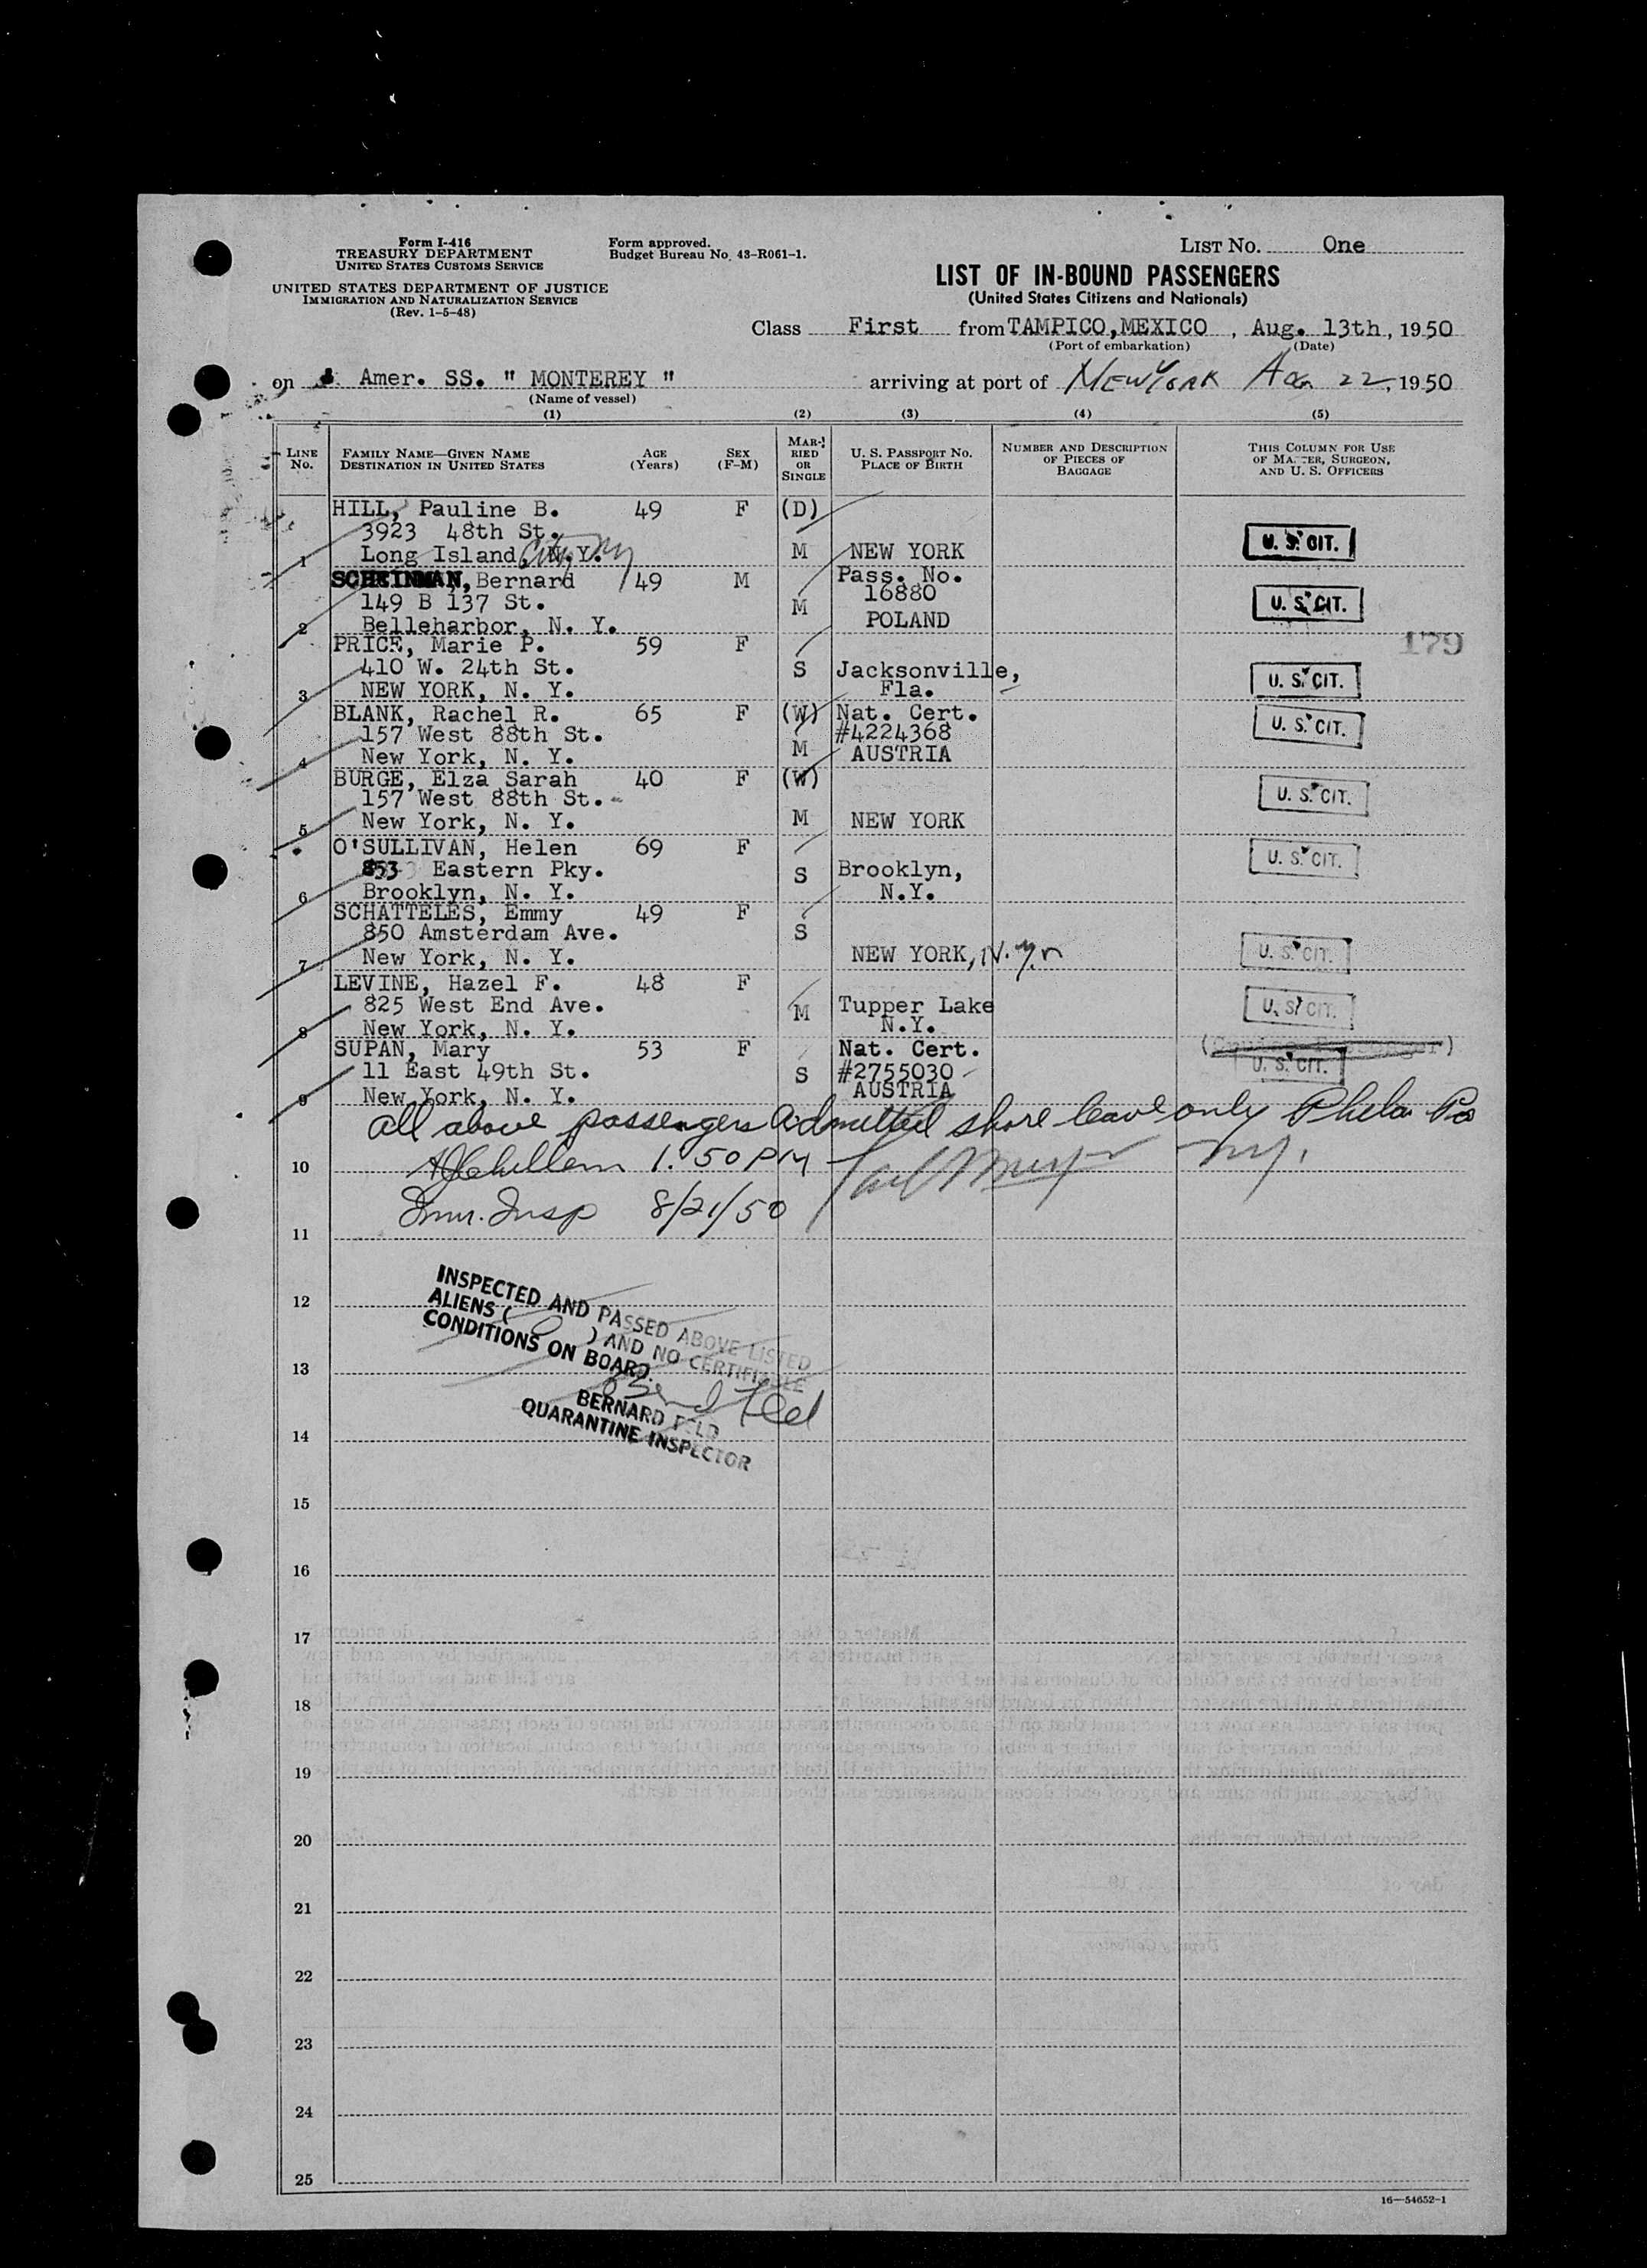 Form I-416
TREASURY DEPARTMENT
UNITED STATES CUSTOMS SERVICE
UNITED STATES DEPARTMENT OF JUSTICE
IMMIGRATION AND NATURALIZATION SERVICE
(Rev. 1-5-48)
Form approved.
Budget Bureau No. 43-R061-1.
LIST NO. One
LIST OF IN-BOUND PASSENGERS
(United States Citizens and Nationals)
Class First from TAMPICO, MEXICO, Aug. 13th, 1950
(Port of embarkation) (Date)
on Amer. SS. " MONTEREY " arriving at port of NEW YORK 22, 1950
(Name of vessel)
(1) (2) (3) (4) (5)
LINE No. FAMILY NAME—GIVEN NAME DESTINATION IN UNITED STATES AGE (Years) SEX (F-M) MARRIED OR SINGLE U. S. PASSPORT NO. PLACE OF BIRTH NUMBER AND DESCRIPTION OF PIECES OF BAGGAGE THIS COLUMN FOR USE OF MASTER, SURGEON, AND U. S. OFFICERS
HILL, Pauline B. 49 F (D)
3923 48th St. U. S. CIT.
1 Long Island City, N.Y. M NEW YORK
SCHEINMAN, Bernard 49 M Pass. No.
149 B 137 St. M 16880 U. S. CIT.
2 Belleharbor, N. Y. POLAND
PRICE, Marie P. 59 F 179
410 W. 24th St. S Jacksonville,
3 NEW YORK, N. Y. Fla. U. S. CIT.
BLANK, Rachel R. 65 F (W) Nat. Cert.
157 West 88th St. #4224368 U. S. CIT.
4 New York, N. Y. M AUSTRIA
BURGE, Elza Sarah 40 F (W)
157 West 88th St. U. S. CIT.
5 New York, N. Y. M NEW YORK
O'SULLIVAN, Helen 69 F U. S. CIT.
853 Eastern Pky. S Brooklyn,
6 Brooklyn, N. Y. N.Y.
SCHATTELES, Emmy 49 F
850 Amsterdam Ave. S
7 New York, N. Y. NEW YORK, N.Y. U. S. CIT.
LEVINE, Hazel F. 48 F
825 West End Ave. M Tupper Lake U. S. CIT.
8 New York, N. Y. N.Y.
SUPAN, Mary 53 F Nat. Cert.
11 East 49th St. S #2755030 U. S. CIT.
9 New York, N. Y. AUSTRIA
all above passengers admitted shore leave only Phela Pa
10 1:50 PM N.Y.
Imm. Insp 8/21/50
11
12
INSPECTED AND PASSED ABOVE LISTED
ALIENS ( 0 ) AND NO CERTIFIABLE
CONDITIONS ON BOARD.
13
BERNARD FELD
QUARANTINE INSPECTOR
14
15
16
17
18
19
20
21
22
23
24
25
16—54652-1